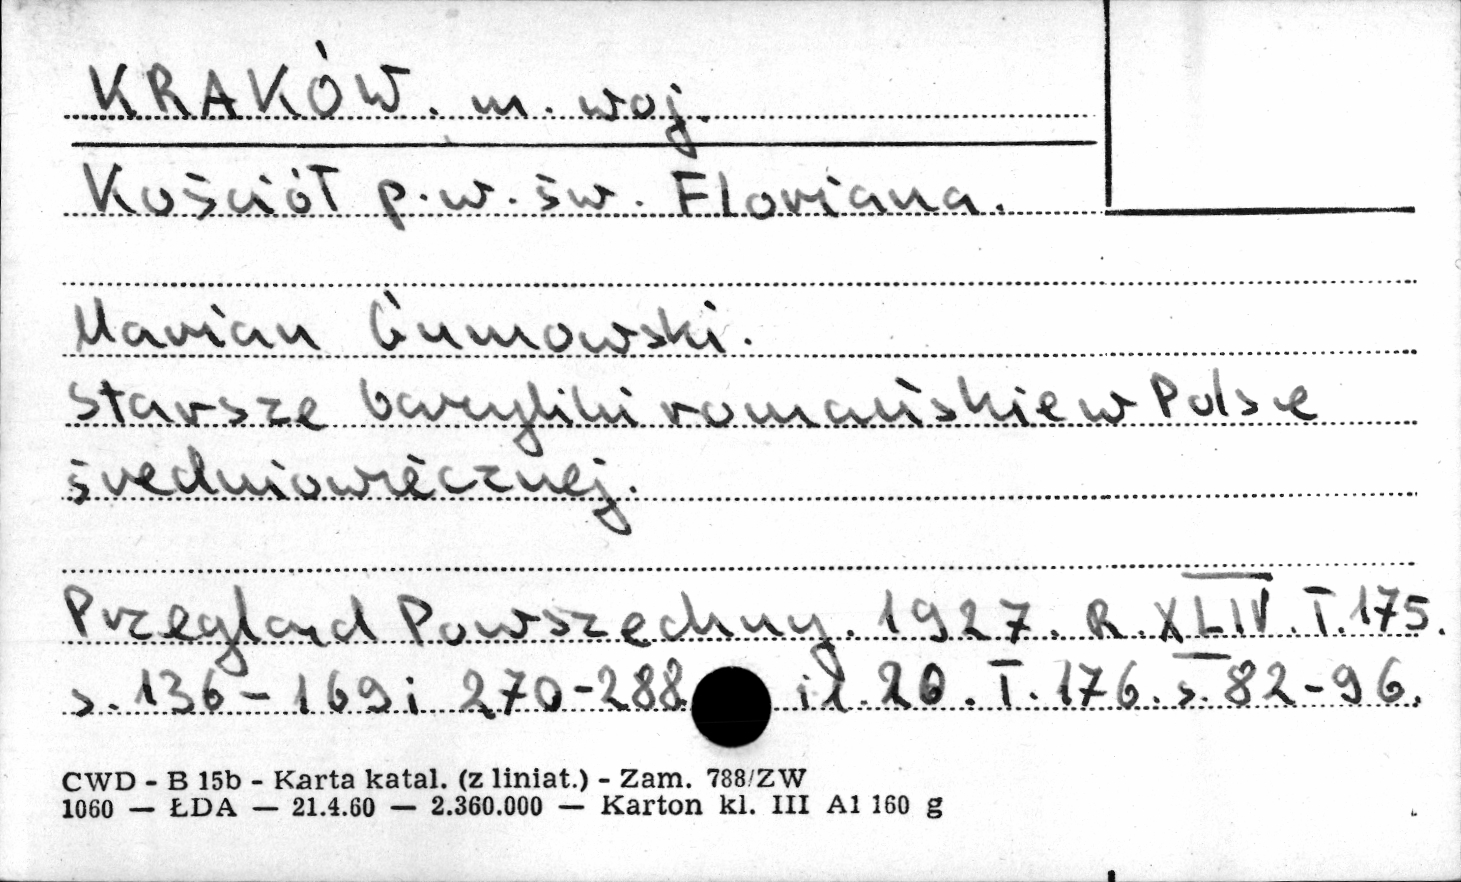 KRAKÓW. m. woj.
Kościół p.w. św. Floriana.
Marian Gumowski.
Starsze bazyliki romańskie w Polsce
średniowiecznej.
Przegląd Powszechny. 1927. R. XLIV. T. 175.
s. 136-169 i 270-288 il. 20. T. 176. s. 82-96.
CWD - B 15b - Karta katal. (z liniat.) - Zam. 788/ZW
1060 — ŁDA — 21.4.60 — 2.360.000 — Karton kl. III A1 160 g